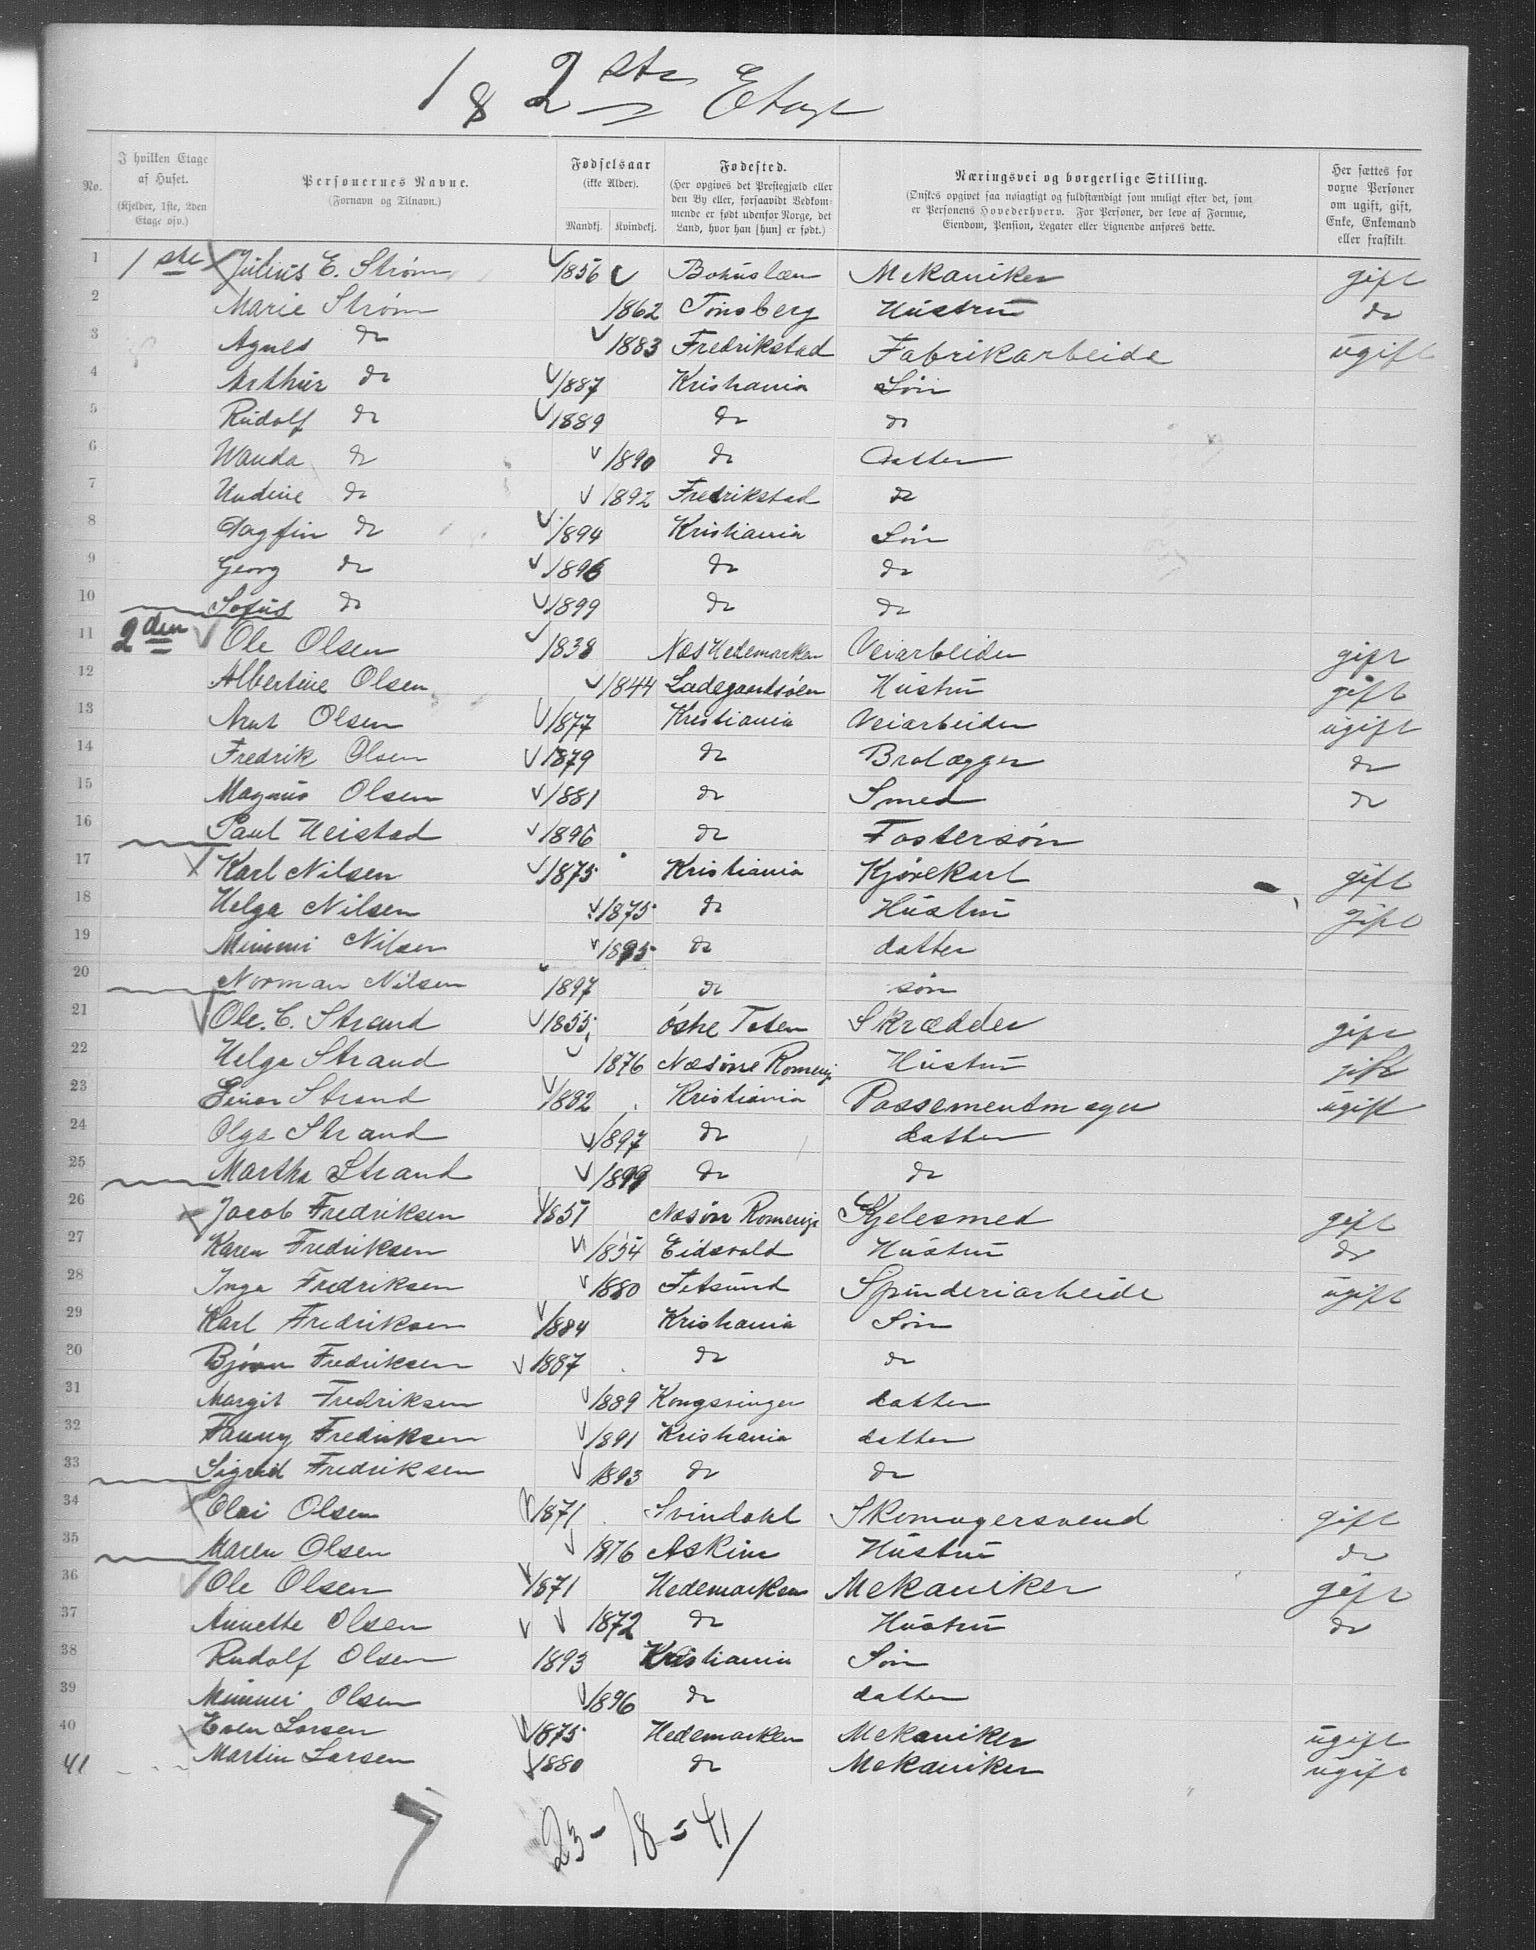 1 & 2 ste Etage
No.
I hvilken Etage af Huset. (Kjelder, 1ste, 2den Etage osv.)
Personernes Navne. (Fornavn og Tilnavn.)
Fødselsaar (ikke Alder). Mandkj. Kvindekj.
Fødested. (Her opgives det Prestegjæld eller den By eller, forsaavidt Vedkommende er født udenfor Norge, det Land, hvor han [hun] er født.)
Næringsvei og borgerlige Stilling. (Ønskes opgivet saa nøiagtigt og fuldstændigt som muligt efter det, som er Personens Hovederhverv. For Personer, der leve af Formue, Eiendom, Pension, Legater eller Lignende anføres dette.
Her sættes for voxne Personer om ugift, gift, Enke, Enkemand eller fraskilt.
1 1ste Julius E. Strøm 1856 Bohuslæn Mekaniker gift
2 Marie Strøm 1862 Tønsberg Hustru do
3 Agnes do 1883 Fredrikstad Fabrikarbeide ugift
4 Arthur do 1887 Kristiania Søn
5 Rudolf do 1889 do do
6 Wanda do 1890 do Datter
7 Undine do 1892 Fredrikstad do
8 Dagfin do 1894 Kristiania Søn
9 Georg do 1896 do do
10 Sofus do 1899 do do
11 2den Ole Olsen 1838 Næs Hedemarken Veiarbeider gift
12 Albertine Olsen 1844 Ladegaardsøen Hustru gift
13 Olsen 1877 Kristiania Veiarbeider ugift
14 Fredrik Olsen 1879 do Brolægger do
15 Magnus Olsen 1881 do Smed do
16 Paul Heistad 1896 do Fostersøn
17 Karl Nilsen 1875 Kristiania Kjørekarl gift
18 Helga Nilsen 1875 do Hustru gift
19 Mimmi Nilsen 1895 do datter
20 Norman Nilsen 1897 do søn
21 Ole. C. Strand 1855 østre Toten Skrædder gift
22 Helga Strand 1876 Næsøne Romerige Hustru gift
23 Einar Strand 1882 Kristiania Possementmager ugift
24 Olga Strand 1897 do datter
25 Martha Strand 1899 do do
26 Jacob Fredriksen 1851 Næsøn Romerige Kjelesmed gift
27 Karen Fredriksen 1854 Eidsvold Hustru do
28 Inga Fredriksen 1880 Fetsund Spinderiarbeide ugift
29 Karl Fredriksen 1884 Kristiania Søn
30 Bjørn Fredriksen 1887 do do
31 Margit Fredriksen 1889 Kongsvinger datter
32 Fanny Fredriksen 1891 Kristiania datter
33 Sigrid Fredriksen 1893 do do
34 Olai Olsen 1871 Svindahl Skomagersvend gift
35 Maren Olsen 1876 Askim Hustru do
36 Ole Olsen 1871 Hedemarken Mekaniker gift
37 Annette Olsen 1872 do Hustru do
38 Rudolf Olsen 1893 Kristiania Søn
39 Mimmi Olsen 1896 do datter
40 Even Larsen 1875 Hedemarken Mekaniker ugift
41 Martin Larsen 1880 do Mekaniker ugift
7 23 - 18 = 41